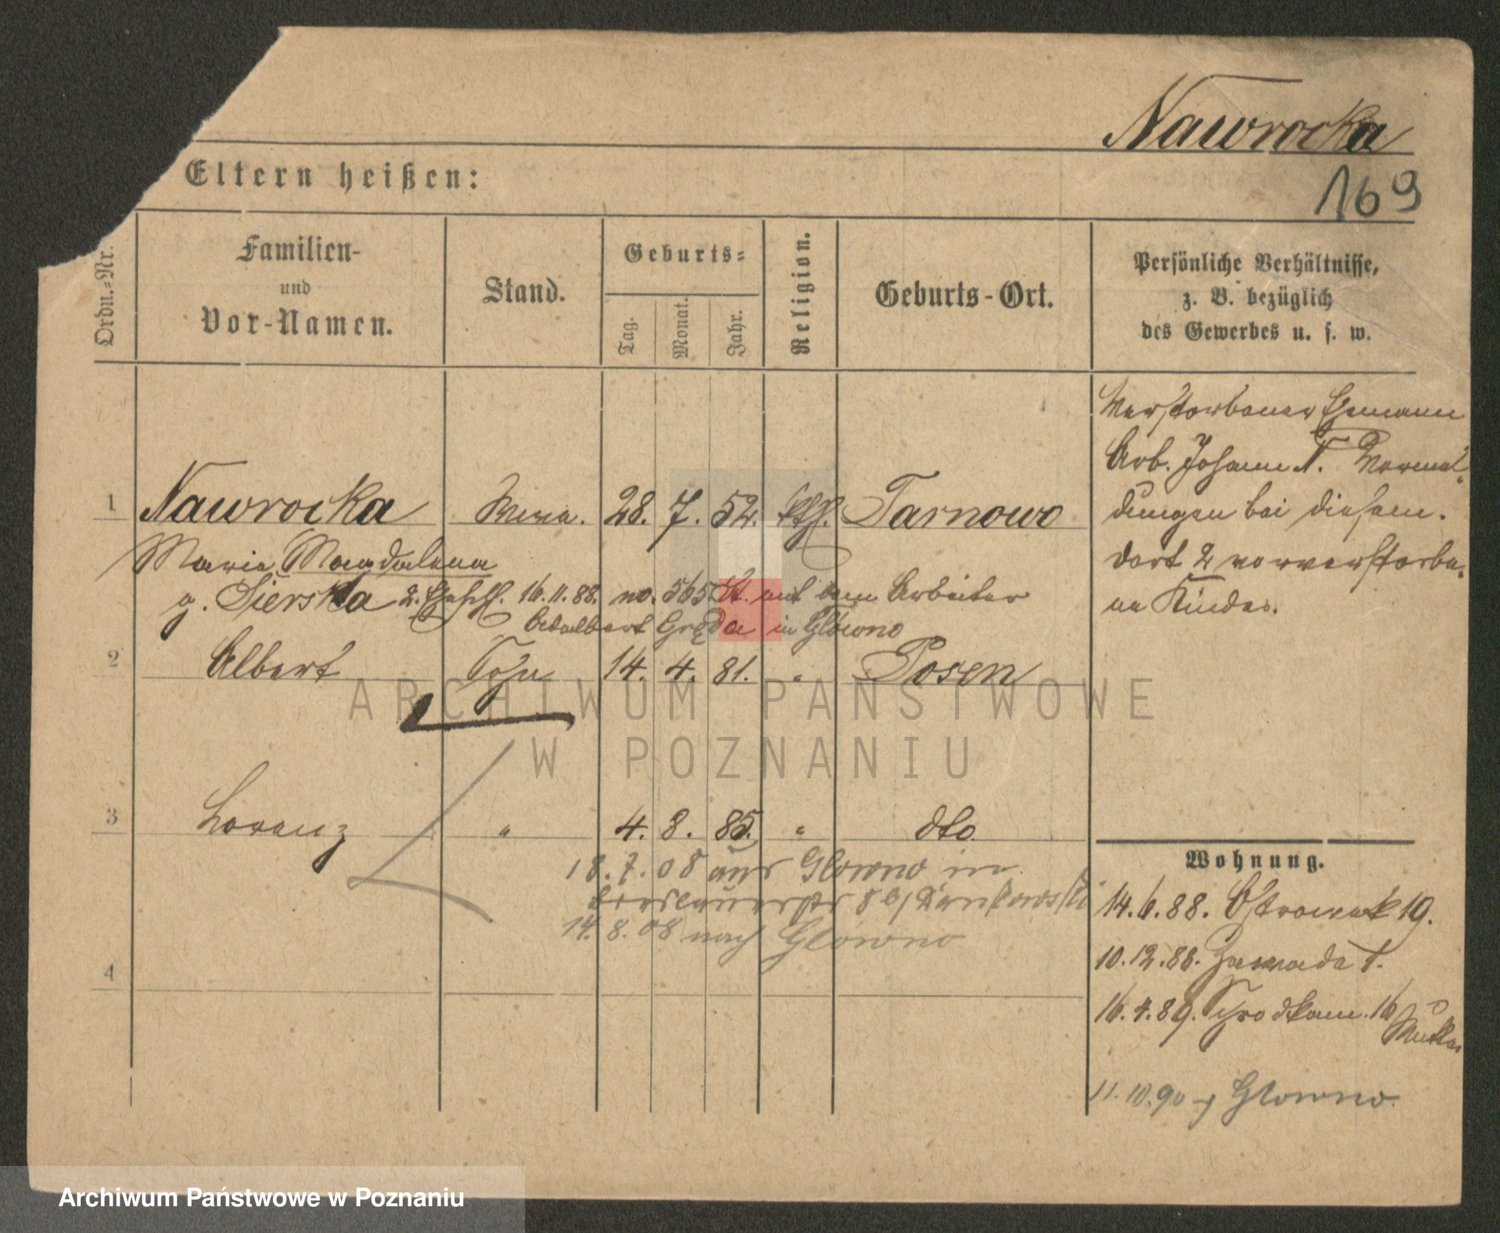 Nawrocka
169
Eltern heißen:
Ordn.-Nr.
Familien-
und
Vor-Namen.
Stand.
Geburts-
Tag.
Monat.
Jahr.
Religion.
Geburts-Ort.
Persönliche Verhältnisse,
z. B. bezüglich
des Gewerbes u. s. w.
Verstorbener Ehemann
Arb. Johann N. Vormel-
dungen bei diesem.
dort 2 vorverstorbe-
ne Kinder.
1 Nawrocka Wwe. 28. 7. 52. kth. Tarnowo
Maria Magdalena
g. Sierska 2. Ehesch. 16.11.88. no. 565 St. mit dem Arbeiter
Adalbert Gręda in Glowno
2 Albert Sohn 14. 4. 81. " Posen
3 Lorenz " 4. 8. 85. " dto
18.7.08 aus Glowno in
8 b/
14.8.08 nach Glowno
4
Wohnung.
14.6.88. Ostrowek 19.
10.12.88. Zawade 1.
16.4.89. Schrodkam. 16
Mutter
11.10.90 Glowno.
ARCHIWUM PAŃSTWOWE
W POZNANIU
Archiwum Państwowe w Poznaniu